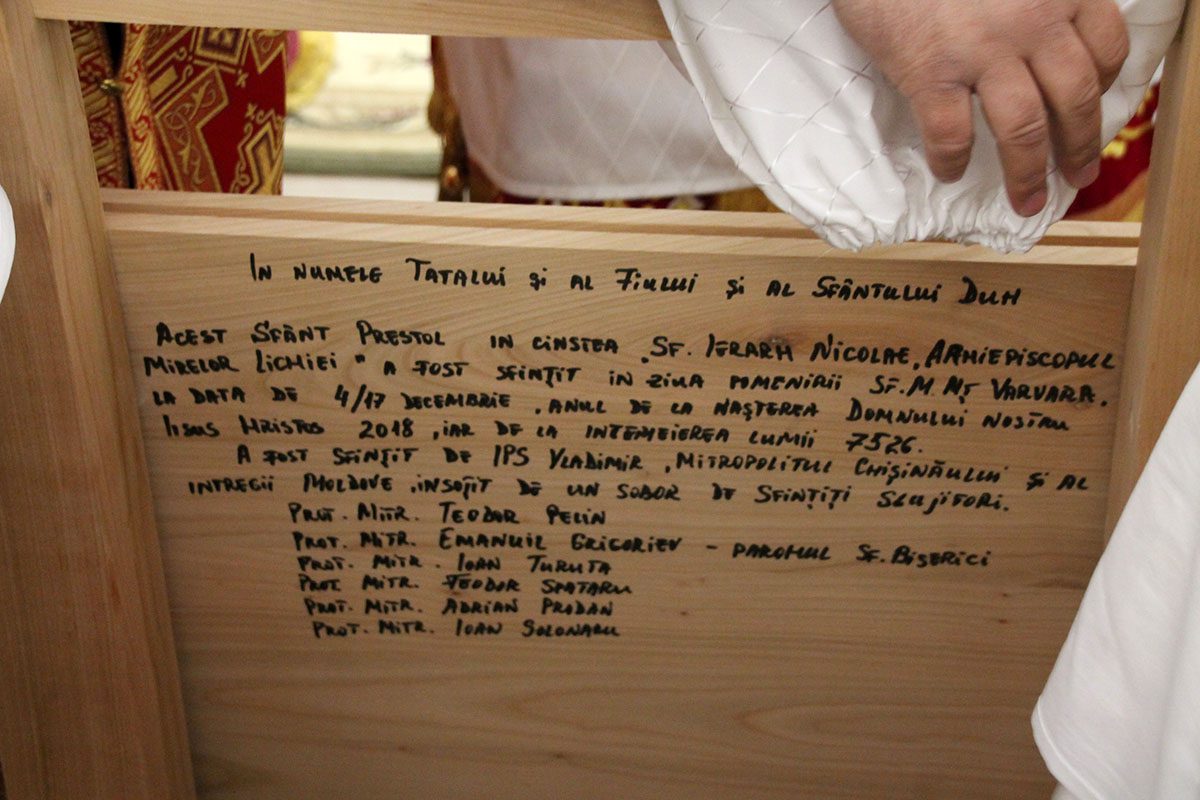 IN NUMELE TATALUI ȘI AL FIULUI ȘI AL SFÂNTULUI DUH
ACEST SFÂNT PRESTOL IN CINSTEA „SF. IERARH NICOLAE, ARHIEPISCOPUL
MIRELOR LICHIEI" A FOST SFINȚIT IN ZIUA POMENIRII SF. M NȚ VARVARA.
LA DATA DE 4/17 DECEMBRIE, ANUL DE LA NAȘTEREA DOMNULUI NOSTRU
IISUS HRISTOS 2018, IAR DE LA INTEMEIEREA LUMII 7526.
A FOST SFINȚIT DE IPS VLADIMIR, MITROPOLITUL CHIȘINĂULUI ȘI AL
INTREGII MOLDOVE, INSOȚIT DE UN SOBOR DE SFINȚIȚI SLUJITORI.
PROT. MITR. TEODOR PELIN
PROT. MITR. EMANUIL GRIGORIEV - PAROHUL SF. BISERICI
PROT. MITR. IOAN TURUTA
PROT. MITR. TEODOR SPATARU
PROT. MITR. ADRIAN PRODAN
PROT. MITR. IOAN SOLONARU